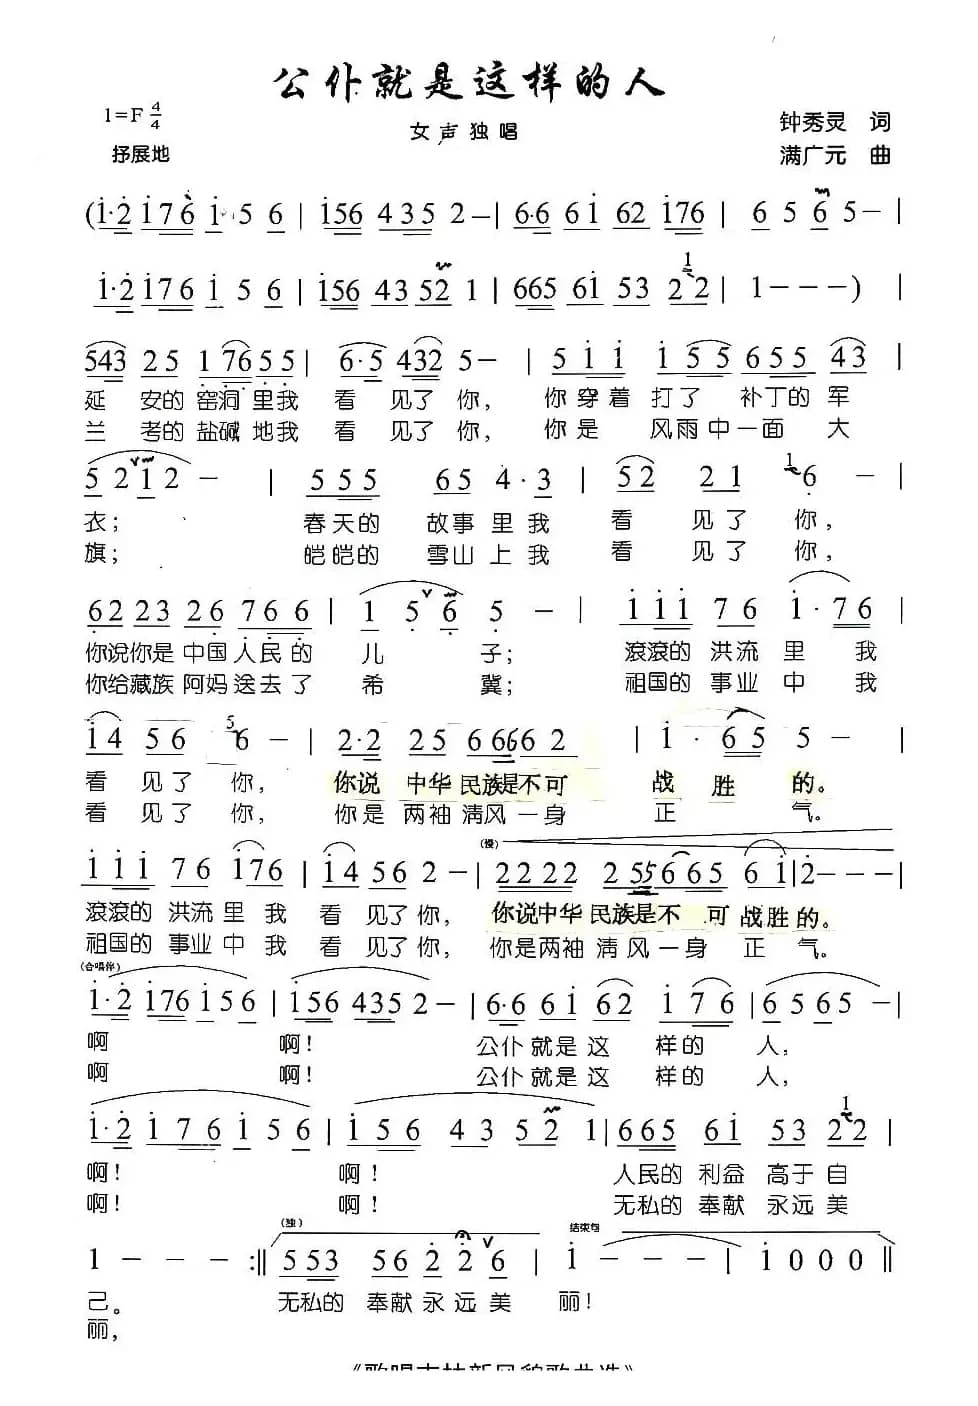 公仆就是这样的人
1=F 4/4
女声独唱
钟秀灵 词
抒展地
满广元 曲
(i·2 i76 i 5 6 | i56 435 2 – | 6·6 6i 62 i76 | 6 5 6 5 – |
i·2 i76 i 5 6 | i56 43 52 1 | 665 6i 53 2 2 | 1 – – – ) |
543 25 1 76 55 | 6·5 432 5 – | 5 i i i 55 655 43 |
延 安的 窑洞 里我 看 见了 你, 你 穿着 打了 补丁的 军
兰 考的 盐碱 地我 看 见了 你, 你是 风雨中一面 大
5 2 i 2 – | 5 5 5 65 4·3 | 52 21 6 – |
衣; 春天的 故事 里我 看 见了 你,
旗; 皑皑的 雪山 上我 看 见了 你,
62 23 26 7 6 6 | 1 5 6 5 – | i i i 76 i·76 |
你说你是 中国 人民的 儿 子; 滚滚的 洪流 里 我
你给藏族 阿妈 送去了 希 冀; 祖国的 事业 中 我
i4 56 6 – | 2·2 25 66 662 | i · 65 5 – |
看 见了 你, 你说 中华 民族是不可 战 胜 的。
看 见了 你, 你是 两袖 清风一身 正 气。
(慢)
i i i 76 i76 | i4 56 2 – | 2222 2 55 665 6 i | 2 – – |
滚滚的 洪流 里 我 看 见了你, 你说中华 民族是不 可 战胜 的。
祖国的 事业 中 我 看 见了你, 你是两袖 清风一身 正 气。
(合唱伴)
i·2 i76 i56 | i56 435 2 – | 6·6 6i 62 i 76 | 6 5 6 5 – |
啊 啊! 公仆 就是 这 样的 人,
啊 啊! 公仆 就是 这 样的 人,
i·2 i 7 6 i 5 6 | i 5 6 4 3 5 2 1 | 665 6i 53 2 2 |
啊! 啊! 人民的 利益 高于 自
啊! 啊! 无私的 奉献 永远 美
(独) 结束句
1 – – – :‖ 5 53 56 2 2 6 | i – – – | i 0 0 0 ‖
己。 无私的 奉献 永远 美 丽!
丽,
《歌唱吉林新风貌歌曲选》